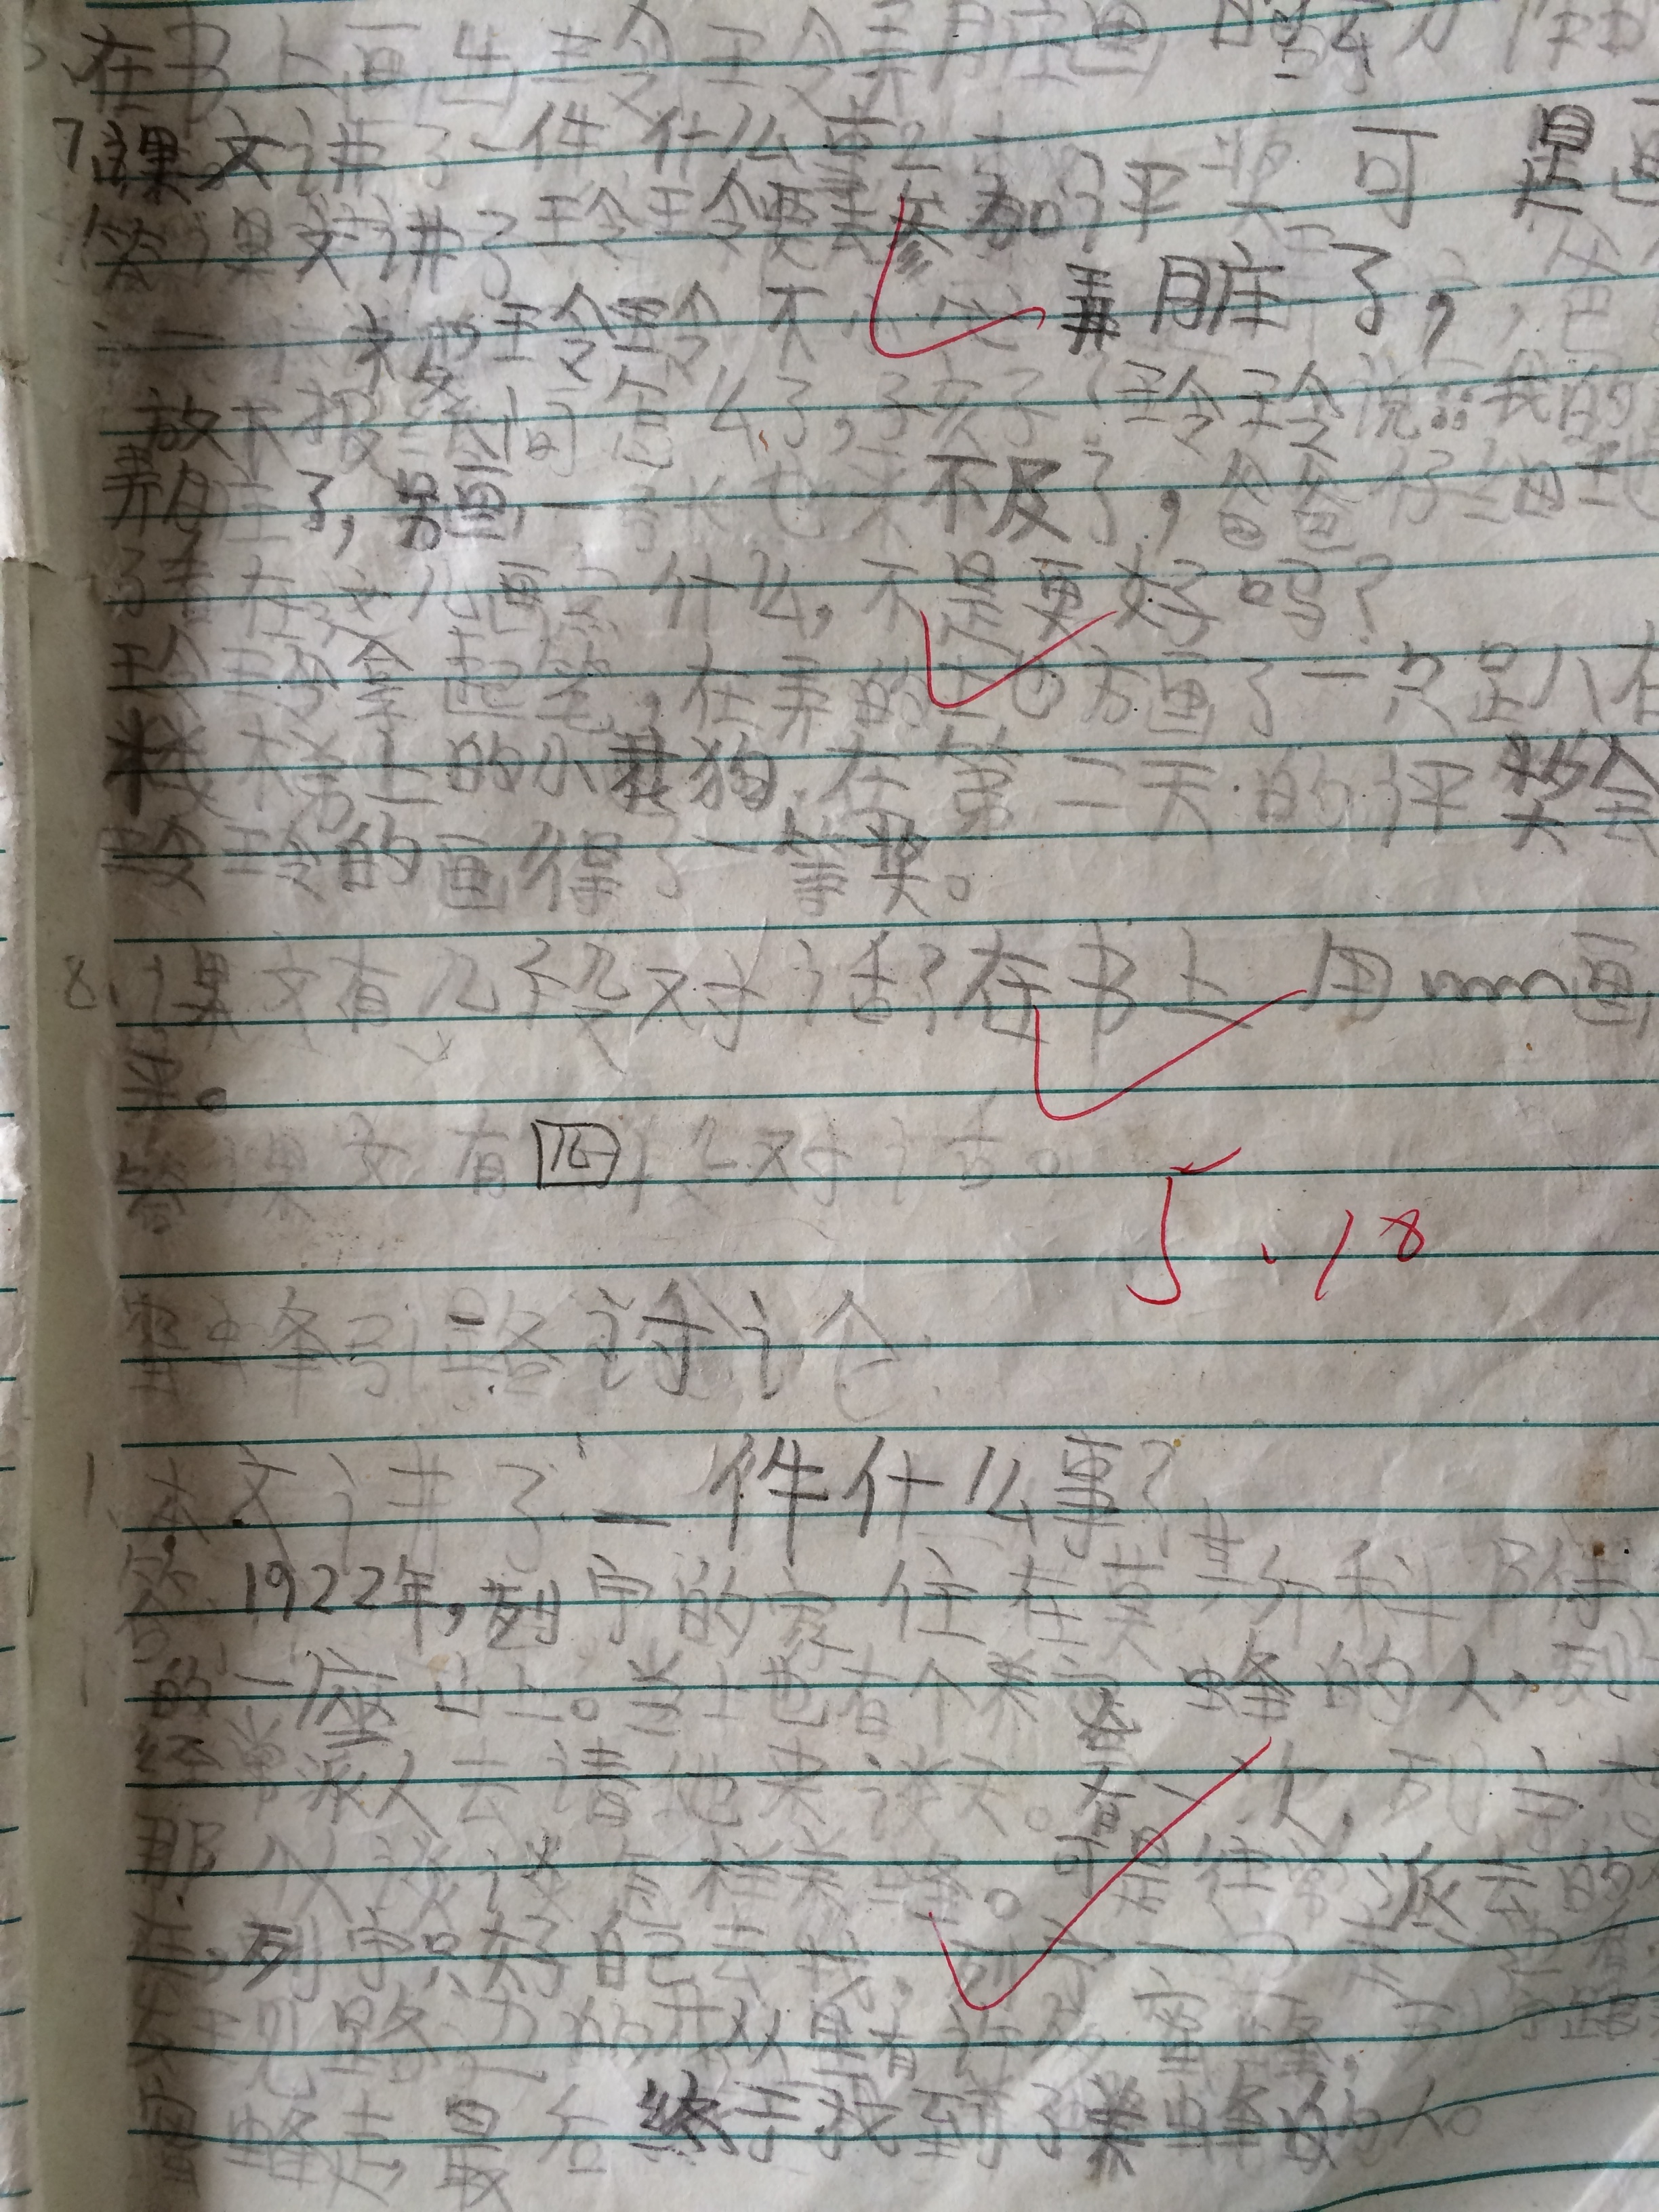 在书上画出玲玲弄脏画的动作
7、课文讲了一件什么事?
答:课文讲了玲玲要去参加评奖可是画
玲玲不小心弄脏了,
放下报纸问怎么了,孩子玲玲说:我的
弄脏了,另画一张也来不及了,爸爸仔细地
了看在这儿画点什么,不是更好吗?
玲玲拿起笔,在弄的地方画了一只
楼梯上的小花狗.在第二天的评奖会
玲玲的画得了一等奖。
8、课文有几段对话?在书上用画
答课文有四段对话。
5.18
蜜蜂引路讨论
1、本文讲了一件什么事?
答:1922年,列宁的家住在莫斯科附
的一座山上。当地有个养蜜蜂的人,列
经常派人去请他来谈天。有一次,列宁想
那个人谈谈怎样养蜂。可是往常派去的
在,列宁只好自己去找,列宁一
发现路边的有许多蜜蜂.列宁跟
蜜蜂走,最后终于找到了养蜂的人。